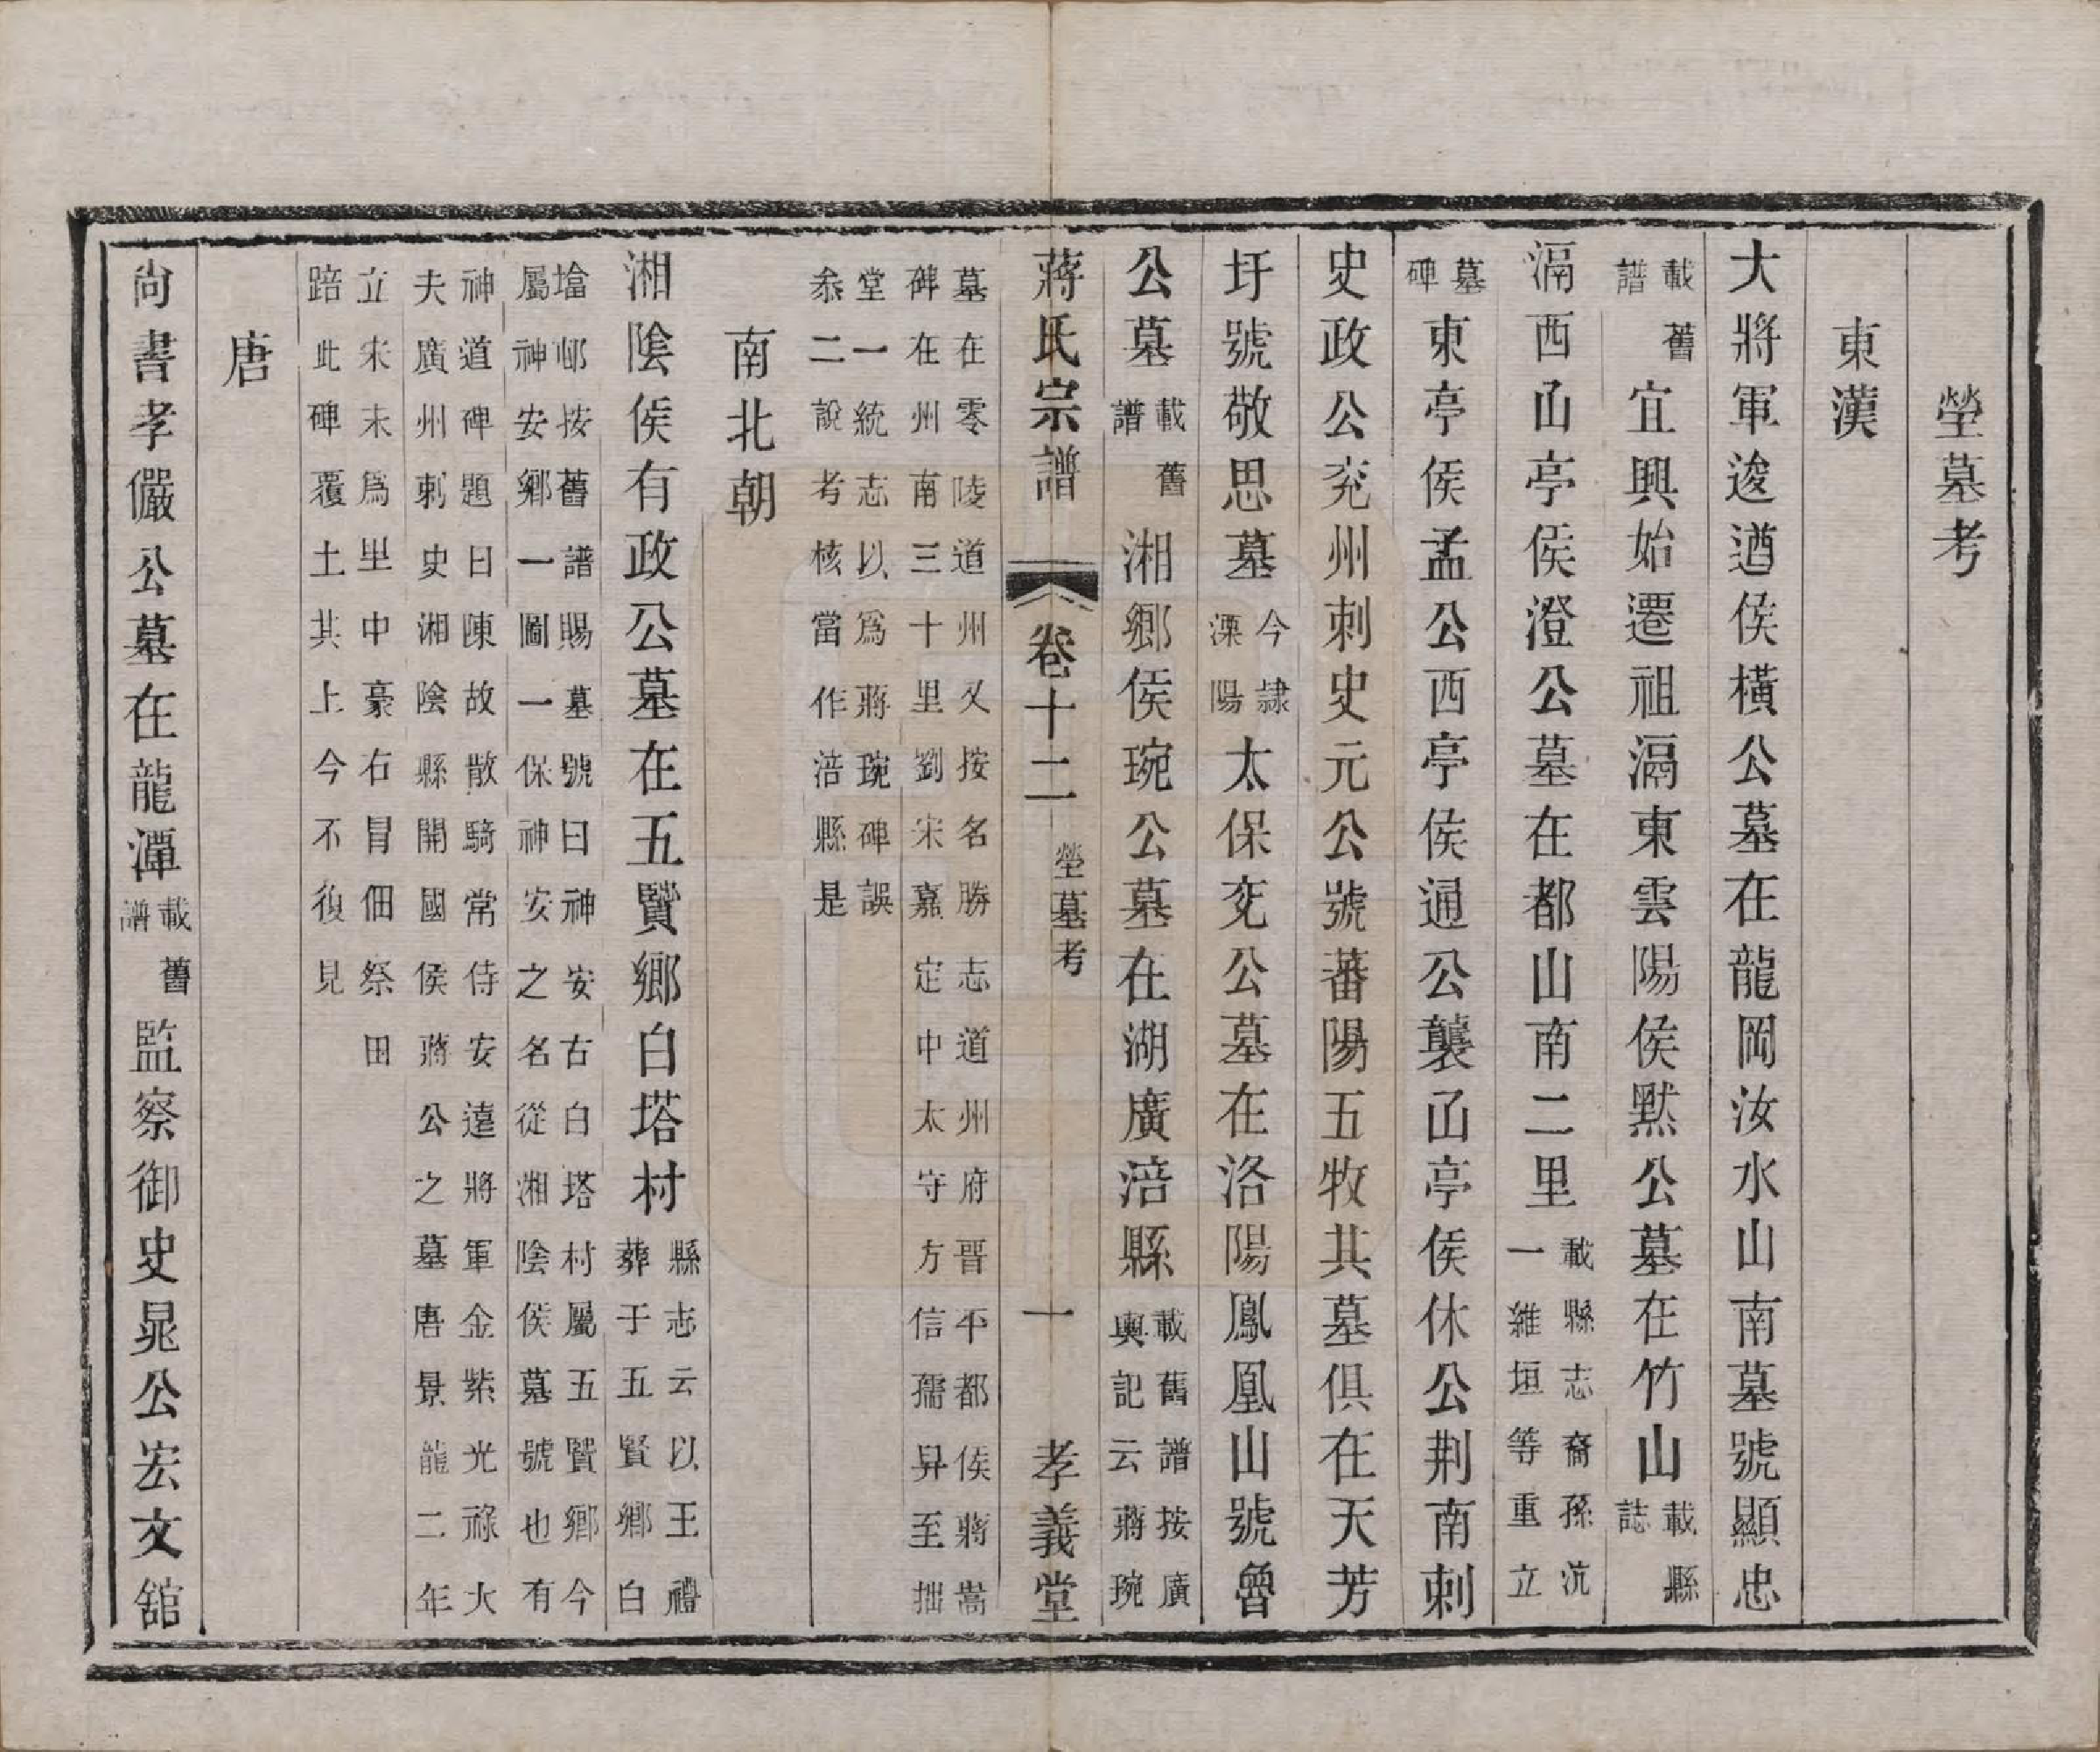 塋墓考
東漢
大將軍逡遒侯橫公墓在龍岡汝水山南墓號顯忠
載舊譜宜興始遷祖滆東雲陽侯默公墓在竹山載縣誌
滆西𠙽亭侯澄公墓在都山南二里載縣志裔孫沆一維垣等重立
墓碑東亭侯孟公西亭侯通公襲𠙽亭侯休公荆南刺
史政公兖州刺史元公號蕃陽五牧其墓俱在天芳
圩號敬思墓今隷溧陽太保兖公墓在洛陽鳳凰山號魯
公墓載舊譜湘鄉侯琬公墓在湖廣涪縣載舊譜按廣輿記云蔣琬
蔣氏宗譜 卷十二 塋墓考 一 孝義堂
墓在零陵道州又按名勝志道州府晋平都侯蔣嵩
碑在州南三十里劉宋嘉定中太守方信孺昇至拙
堂一統志以爲蔣琬碑誤
叅二說考核當作涪縣是
南北朝
湘陰侯有政公墓在五賢鄉白塔村縣志云以王禮葬于五賢鄉白
墖邨按舊譜賜墓號曰神安古白塔村屬五賢鄉今
屬神安鄉一圖一保神安之名從湘陰侯墓號也有
神道碑題曰陳故散騎常侍安遠將軍金紫光祿大
夫廣州刺史湘陰縣開國侯蔣公之墓唐景龍二年
立宋末爲里中豪右冒佃祭田
踣此碑覆土其上今不復見
唐
尚書孝儼公墓在龍潭載舊譜監察御史晁公宏文舘